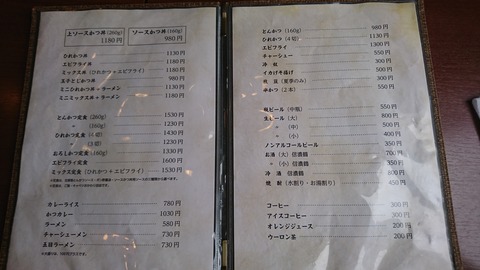 上ソースかつ丼(260g)
1180円
ソースかつ丼(160g)
980円
ひれかつ丼 1130円
エビフライ丼 1180円
ミックス丼(ひれかつ+エビフライ) 1180円
玉子とじかつ丼 980円
ミニひれかつ丼+ラーメン 1130円
ミニミックス丼+ラーメン 1180円
とんかつ定食(260g) 1530円
〃 (160g) 1230円
ひれかつ定食(4切) 1430円
〃 (3切) 1230円
おろしかつ定食(160g) 1330円
エビフライ定食 1600円
ミックス定食(ひれかつ+エビフライ) 1530円
カレーライス 780円
かつカレー 1030円
ラーメン 580円
チャーシューメン 730円
五目ラーメン 730円
とんかつ(160g) 980円
ひれかつ(4切) 1130円
エビフライ 1300円
チャーシュー 550円
冷奴 300円
イカげそ揚げ 500円
枝豆(夏季のみ) 300円
串かつ(2本) 550円
瓶ビール(中瓶) 550円
生ビール(大) 800円
〃 (中) 500円
〃 (小) 400円
ノンアルコールビール 350円
お酒(大)信濃鶴 700円
〃 (小)信濃鶴 350円
冷酒 信濃鶴 800円
焼酎(水割り・お湯割り) 450円
コーヒー 380円
アイスコーヒー 300円
オレンジジュース 200円
ウーロン茶 200円